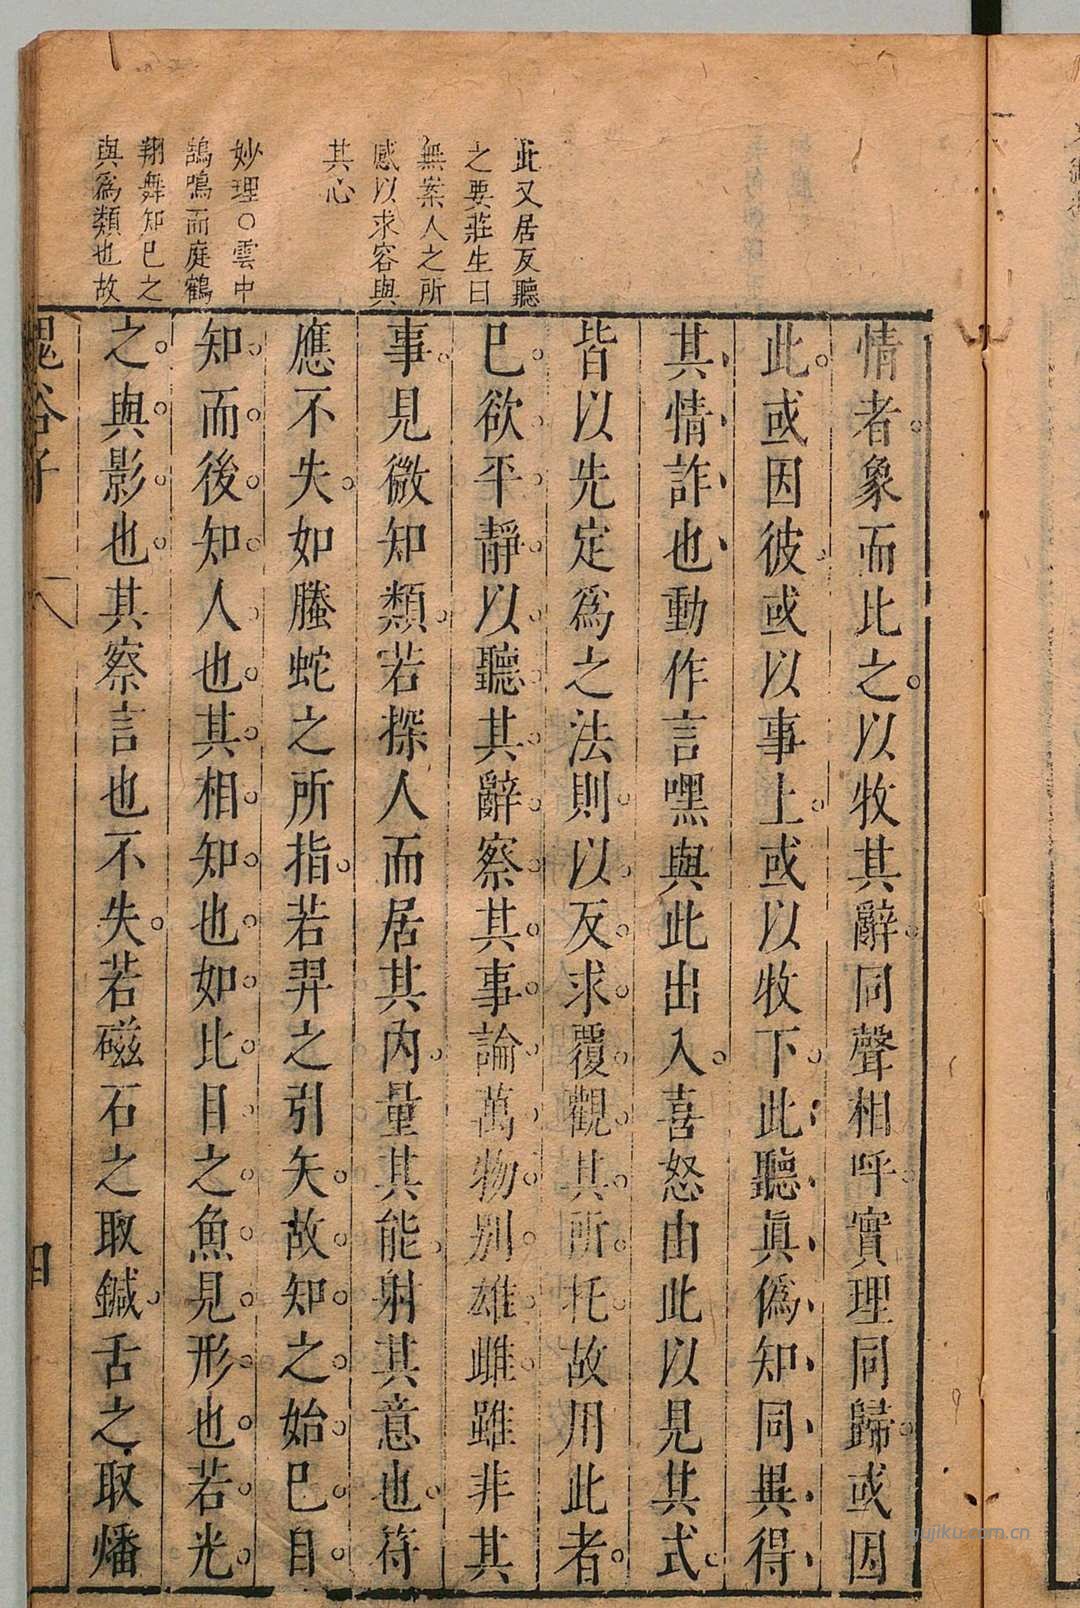 此又居反聽
之要莊生曰
無案人之所
感以求容與
其心
妙理○雲中
鵠鳴而庭鶴
翔舞知巳之
與爲類也故
情者象而比之以牧其辭同聲相呼實理同歸或因
此或因彼或以事上或以牧下此聽眞僞知同異得
其情詐也動作言嘿與此出入喜怒由此以見其式
皆以先定爲之法則以反求覆觀其所托故用此者
巳欲平靜以聽其辭察其事論萬物别雄雌雖非其
事見微知類若探人而居其内量其能射其意也符
應不失如螣蛇之所指若羿之引矢故知之始巳自
知而後知人也其相知也如比目之魚見形也若光
之與影也其察言也不失若磁石之取鍼舌之取燔
鬼谷子
八
四
gujiku.com.cn